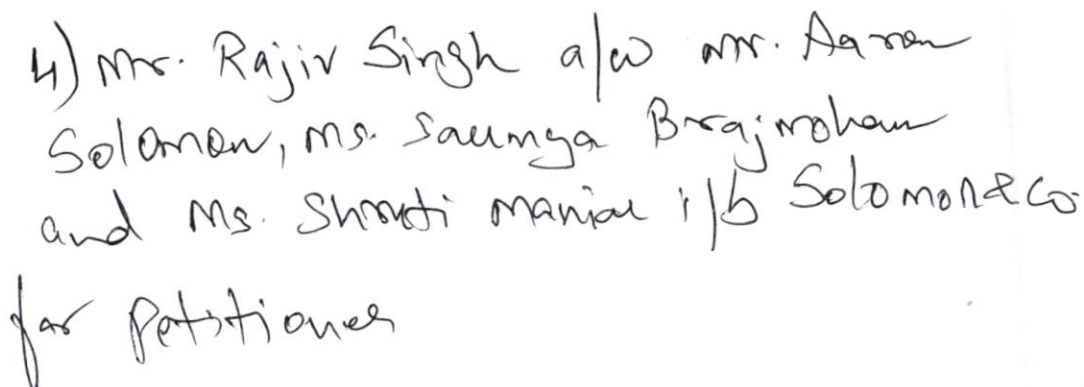 4) Mr. Rajiv Singh a/w Mr. Aaron
Solomon, Ms. Saumya Brajmohan
and Ms. Shruti Maniar i/b Solomon & Co.
for Petitioner